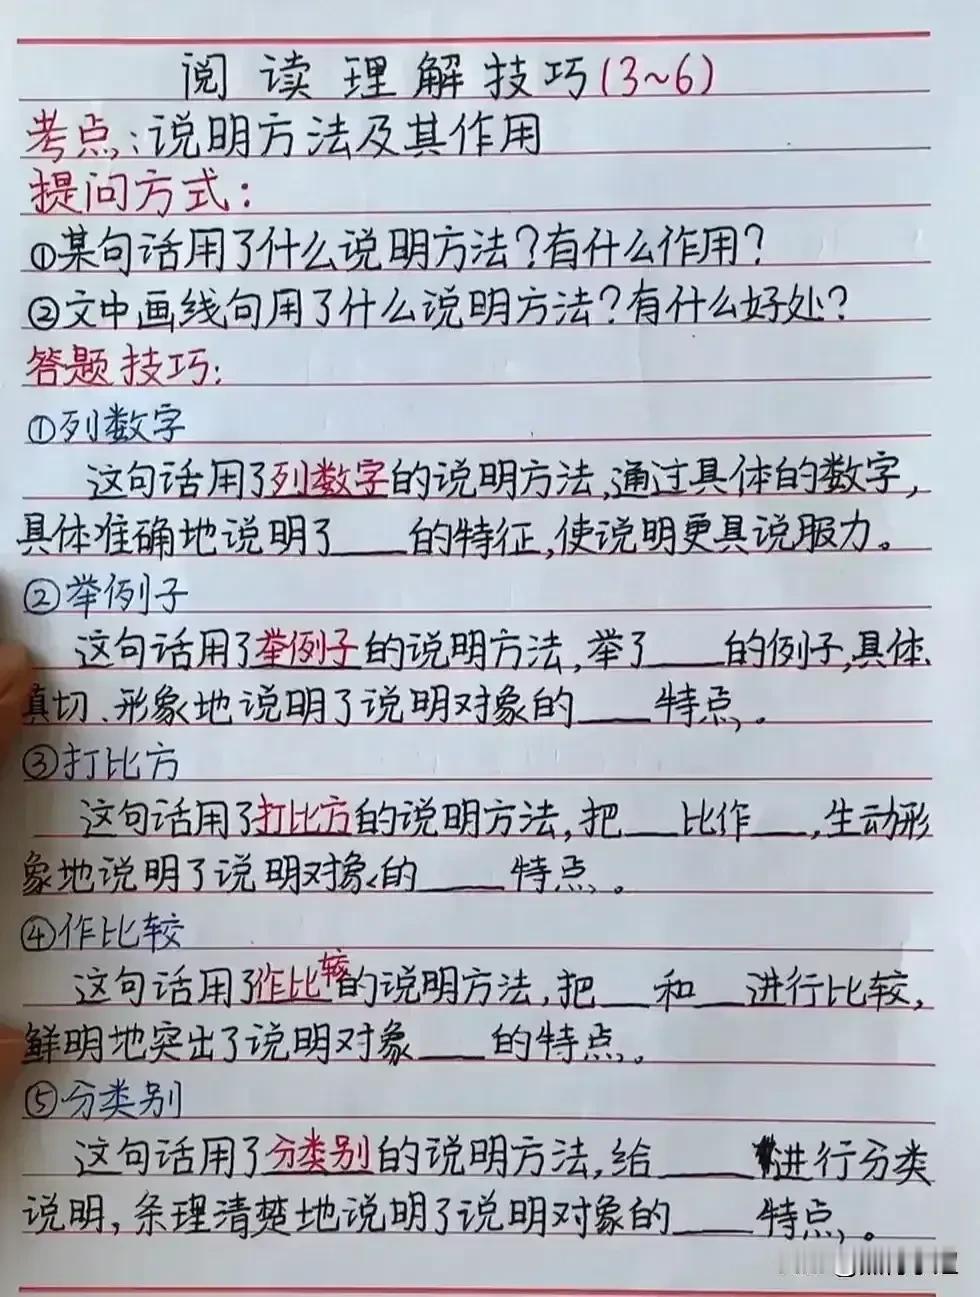 阅读理解技巧(3~6)
考点:说明方法及其作用
提问方式:
①某句话用了什么说明方法?有什么作用?
②文中画线句用了什么说明方法?有什么好处?
答题技巧:
①列数字
这句话用了列数字的说明方法,通过具体的数字,
具体准确地说明了____的特征,使说明更具说服力。
②举例子
这句话用了举例子的说明方法,举了____的例子,具体、
真切、形象地说明了说明对象的____特点。
③打比方
这句话用了打比方的说明方法,把___比作___,生动形
象地说明了说明对象的____特点。
④作比较
这句话用了作比较的说明方法,把___和___进行比较,
鲜明地突出了说明对象____的特点。
⑤分类别
这句话用了分类别的说明方法,给____进行分类
说明,条理清楚地说明了说明对象的____特点。